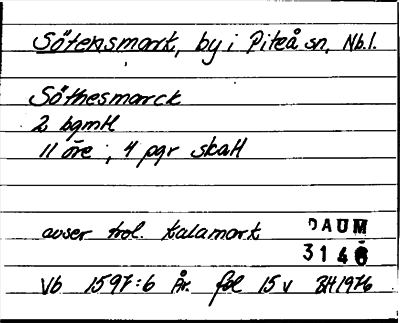 Sötensmark, by i Piteå sn, Nb.l.
Söthesmarck
2 bgmtl
11 öre ; 4 pgr skatt
avser trol. Kalamark
DAUM
3146
Vb 1597:6 År. fol 15 v BH1976